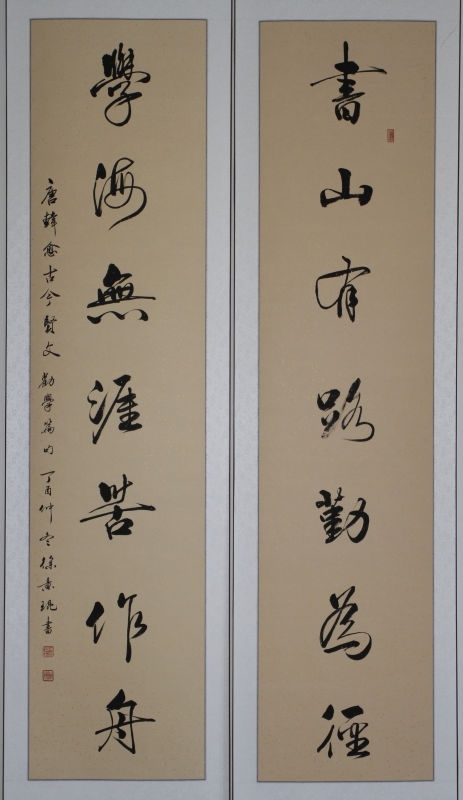 書山有路勤為徑
學海無涯苦作舟
唐韓愈古今賢文勸學篇句 丁酉仲冬徐書